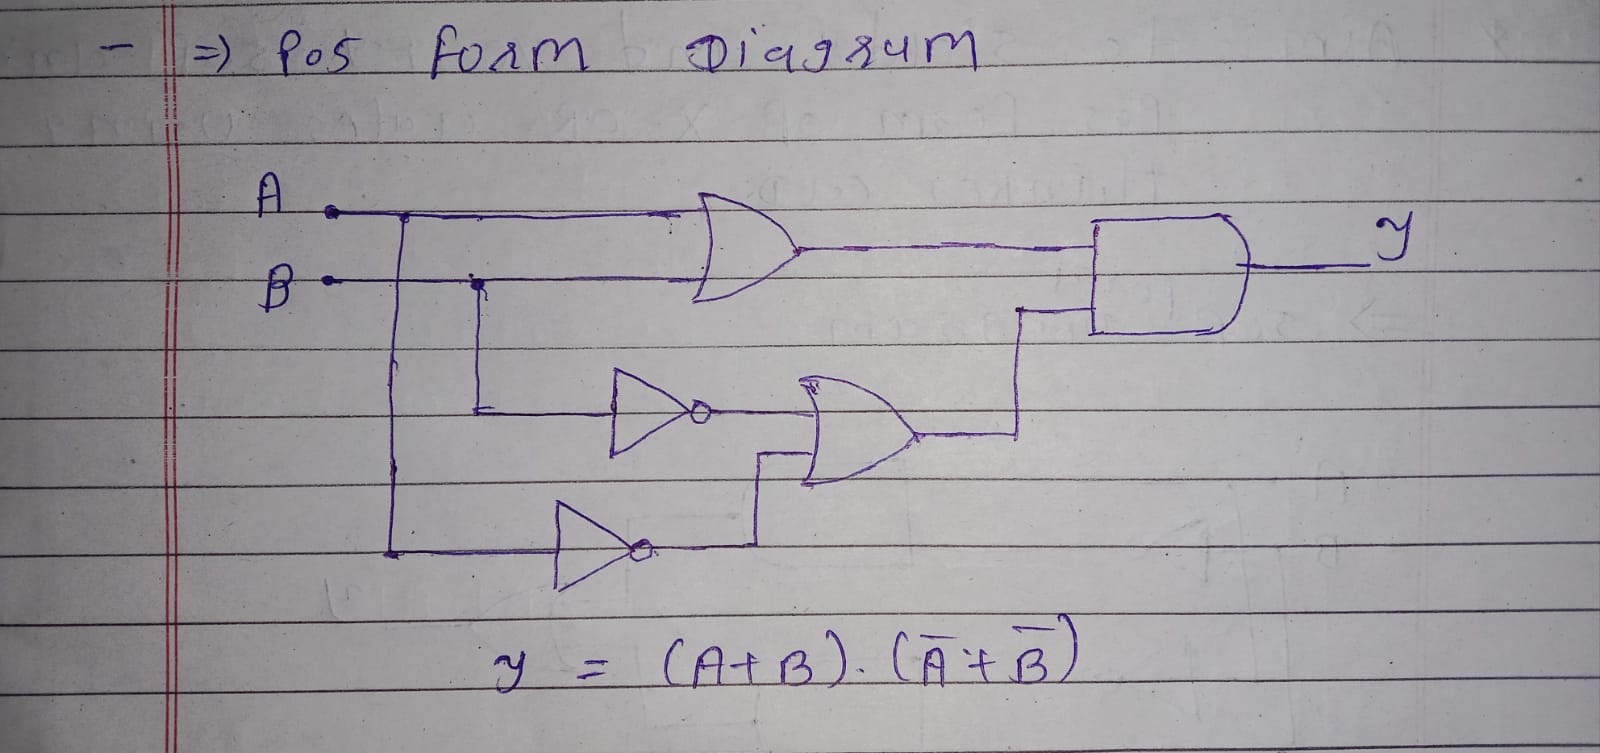 - => Pos form Diagram
A
B
y
y = (A+B).(A̅+B̅)